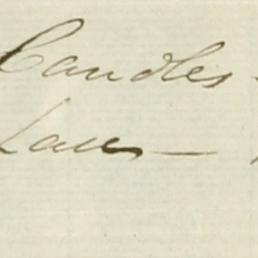 Candles -
Laces —